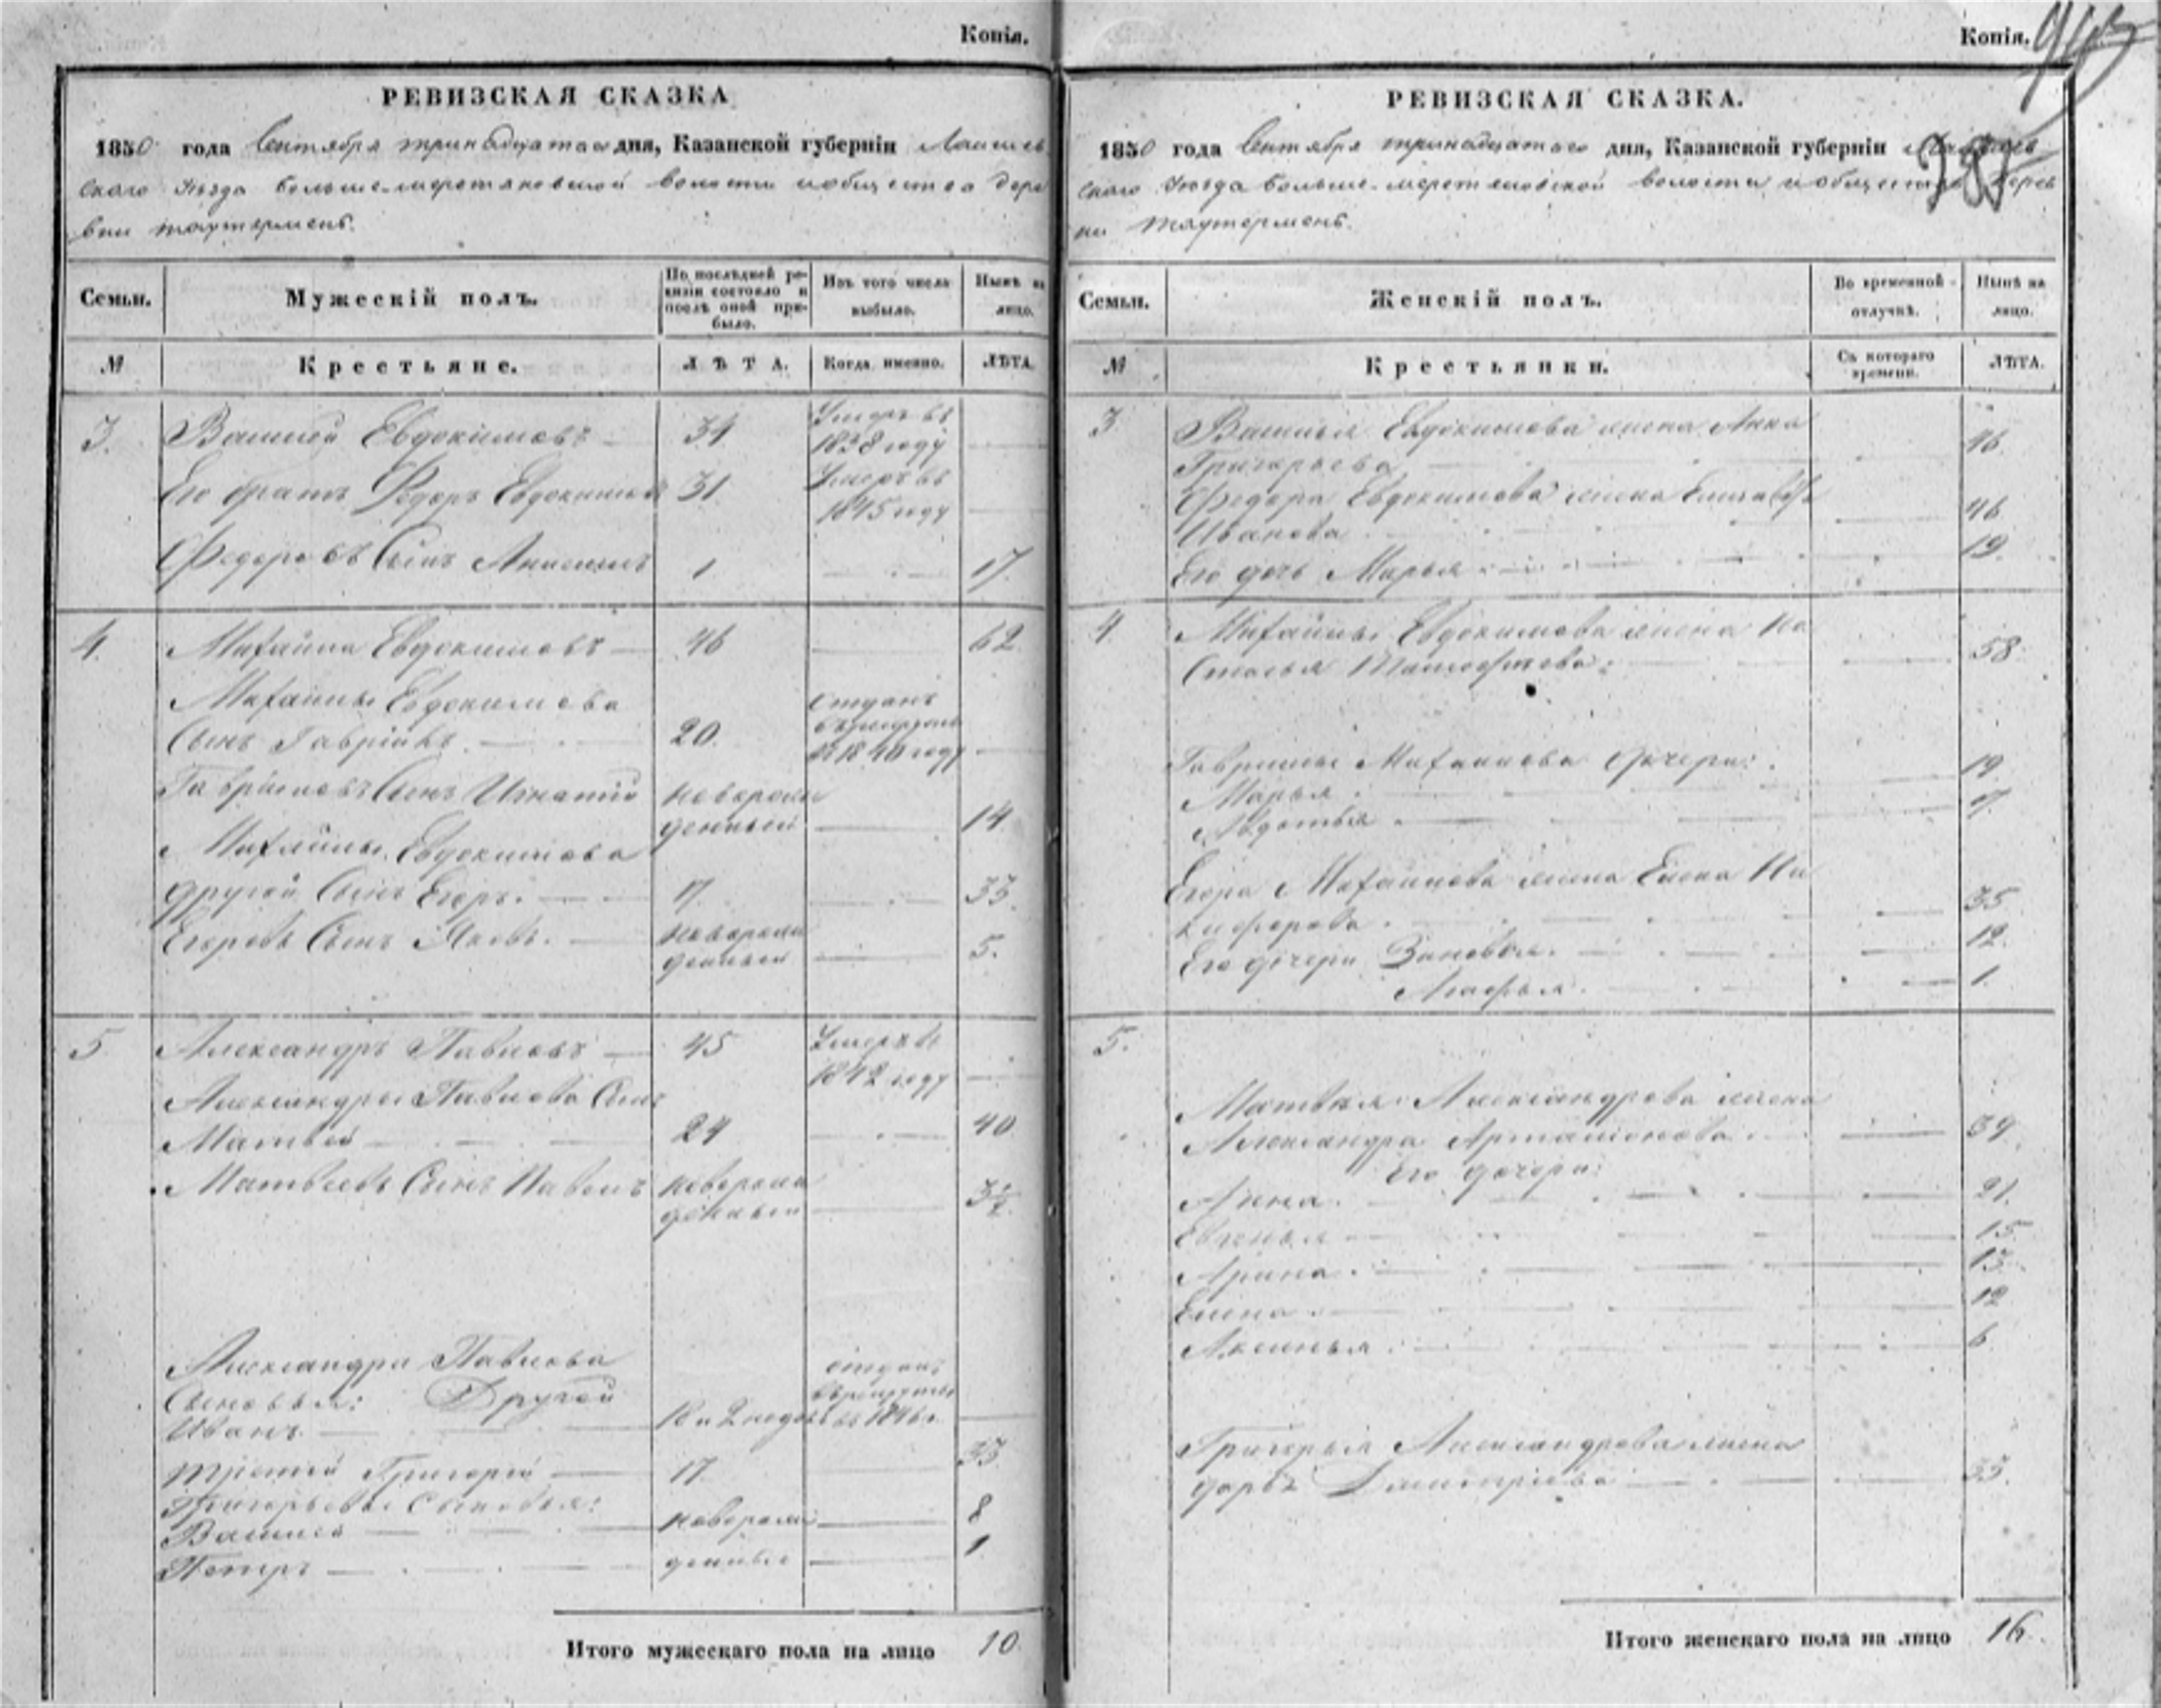 Копія.
РЕВИЗСКАЯ СКАЗКА
1850 года Сентября тринадцатаго дня, Казанской губерніи Лаишев
скаго уѣзда Больше-меретяковской волости и общества дере
вни Таутермень.
Семьи.
Мужескій полъ.
По послѣдней ре-
визіи состояло и
послѣ оной при-
было.
Изъ того числа
выбыло.
Нынѣ на
лицо.
№
Крестьяне.
ЛѢТА.
Когда именно.
ЛѢТА.
3. Василій Евдокимовъ 34 Умеръ въ
1838 году
Его братъ Федоръ Евдокимовъ 31 Умеръ въ
1845 году
Федоровъ Сынъ Анисимъ 1 17
4. Михайла Евдокимовъ 46 62
Михайлы Евдокимова
Сынъ Гаврійлъ 20. Отданъ
въ рекруты
въ 1840 году
Гавриловъ Сынъ Игнатій новорож
денный 14
Михайлы Евдокимова
другой Сынъ Егоръ. 17. 33.
Егоровъ Сынъ Яковъ. новорож
денный 5.
5 Александръ Павловъ 45 Умеръ въ
1842 году
Александры Павлова Сынъ
Матвей 24 40
Матвѣевъ Сынъ Павелъ новорож
денный 3½
Александра Павлова
Сыновья: Другой
Иванъ 18 и 2 недѣ отданъ
въ рекруты
въ 1846 г.
третій Григорій 17 33
Григорьевы Сыновья:
Василій новорож 8
Петръ денные 1
Итого мужескаго пола на лицо 10
Копія.
РЕВИЗСКАЯ СКАЗКА.
1850 года Сентября тринадцатаго дня, Казанской губерніи Лаишев
скаго уѣзда Больше-меретяковской волости и общества дерев
ни Таутермень.
Семьи.
Женскій полъ.
Во временной
отлучкѣ.
Нынѣ на
лицо.
№
Крестьянки.
Съ котораго
времени.
ЛѢТА.
3 Василья Евдокимова жена Анна
Григорьева 46.
Федора Евдокимова жена Елизавѣта
Иванова 46
Его дочь Марья 19.
4 Михайлы Евдокимова жена На
стасья Тимофѣева: 58.
Гаврилы Михайлова дочери:
Марья 19
Авдотья
Егора Михайлова жена Елена Ни
кифорова. 35
Его дочери Зиновья. 12.
Агафья. 1.
5.
Матвѣя Александрова жена
Александра Артамонова. 39.
Его дочери:
Анна. 21.
Евгенья 15
Арина. 13.
Елена. 12
Аксинья. 6.
Григорья Александрова жена
Дарья Дмитріева 33.
Итого женскаго пола на лицо 16.